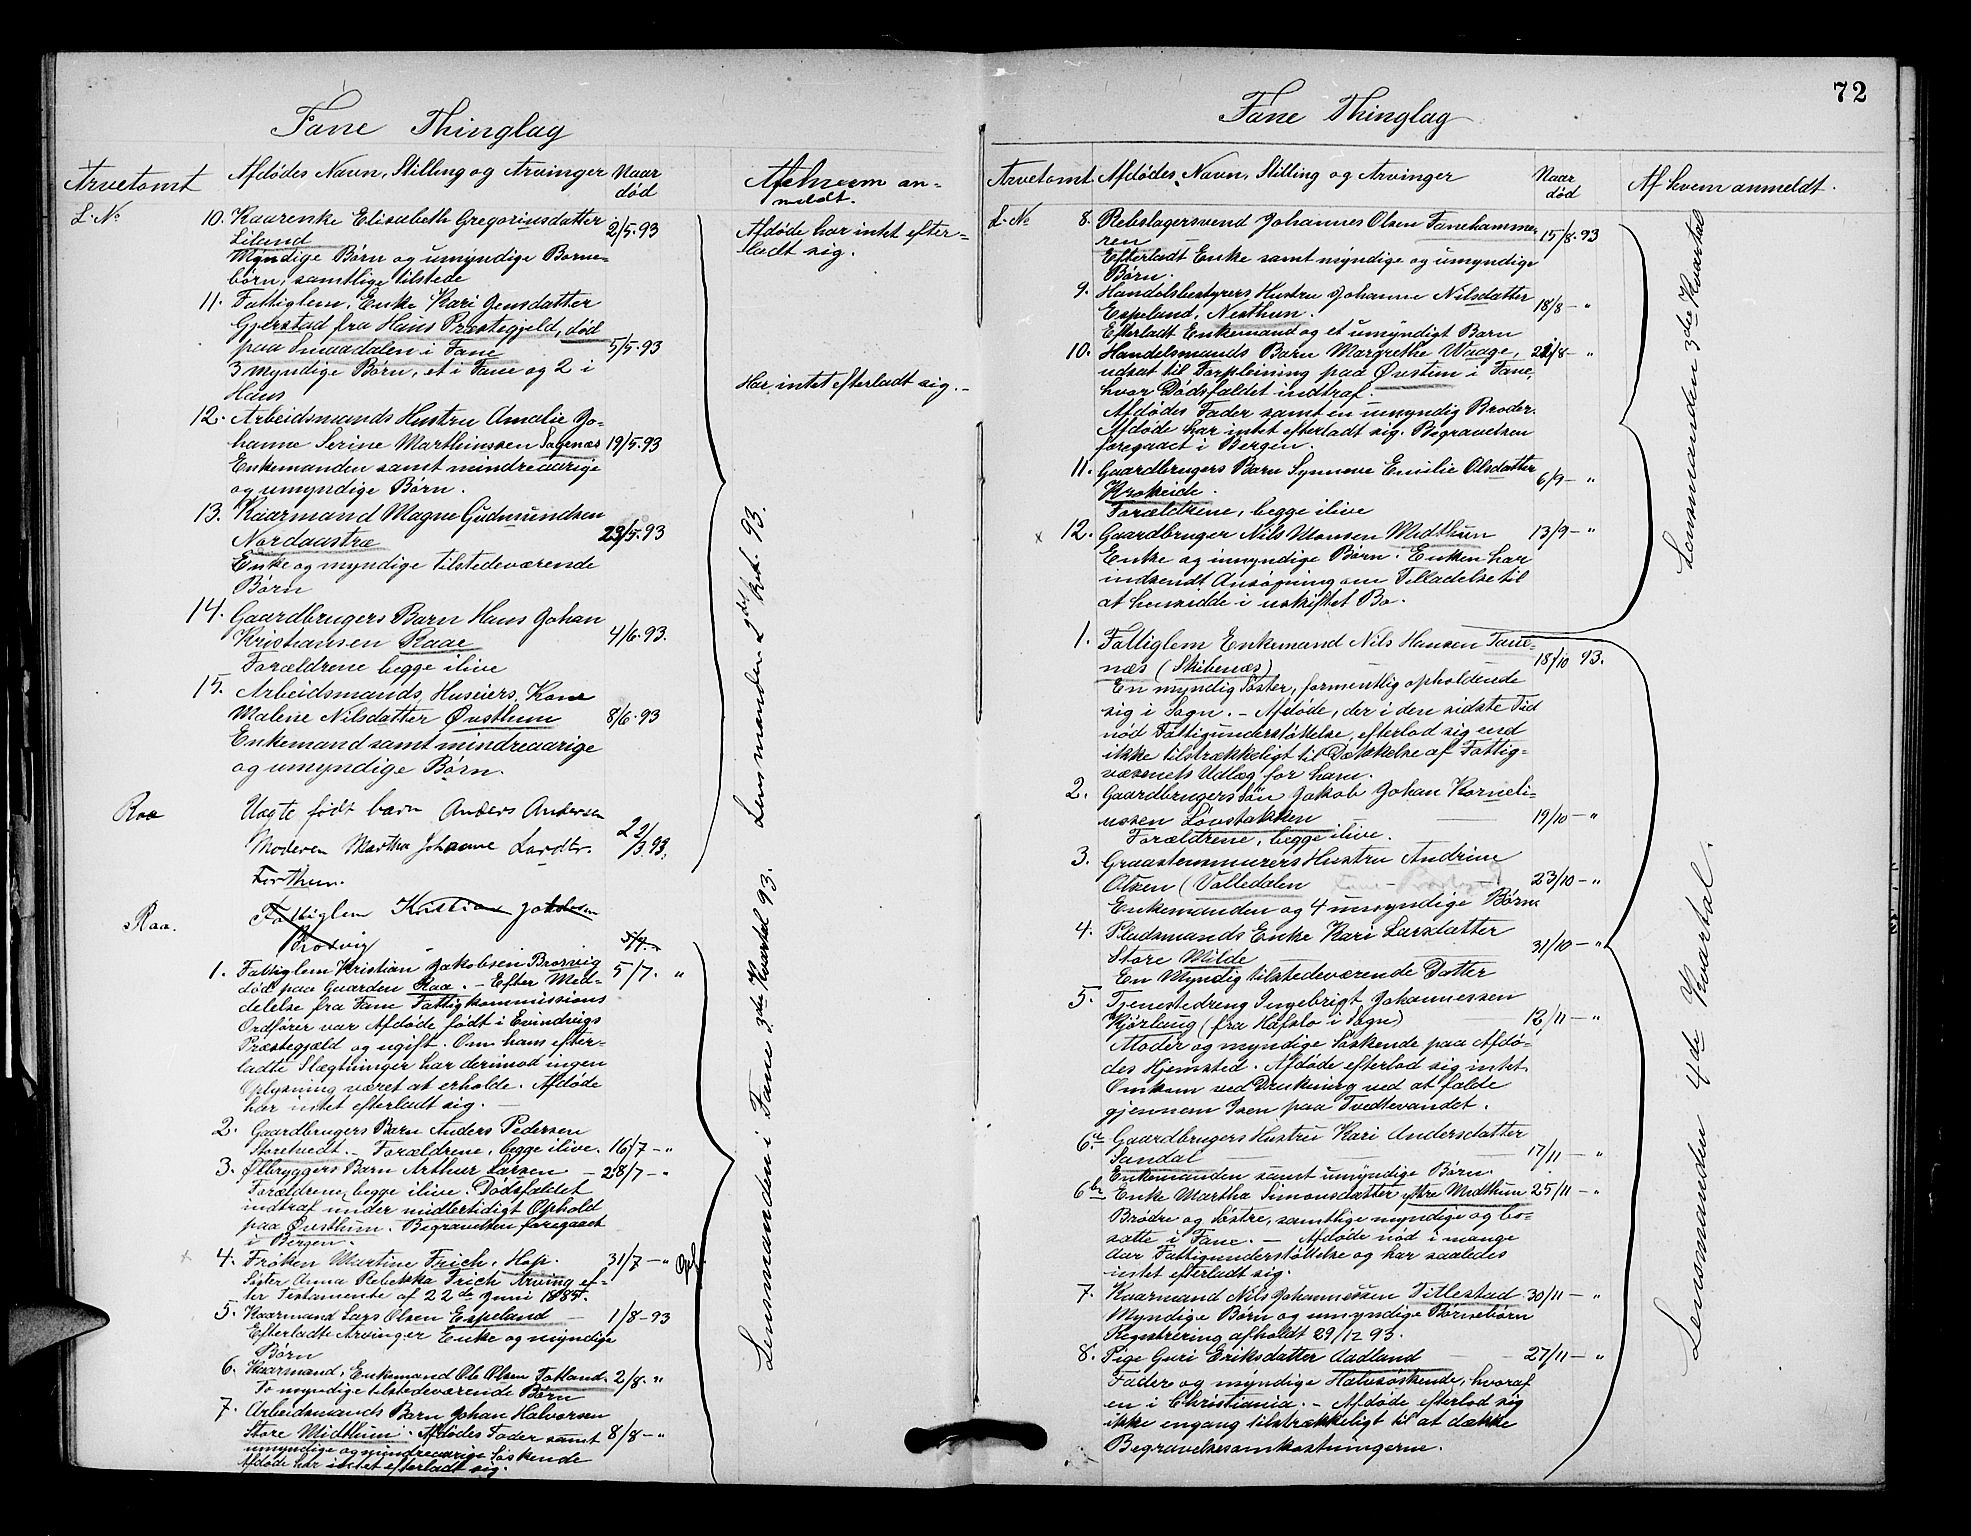 Fane Thinglag
Arvetomt
Afdødes Navn, Stilling og Arvinger
Naar
død
Af hvem an-
meldt.
L. No
10. Kaarenke Elisabeth Gregoriusdatter
Liland
2/5.93
Myndige Børn og umyndige Borne-
børn, samtlige tilstede
Afdøde har intet efter-
ladt sig.
11. Fattiglem, Enke Kari Jensdatter
Gjerstad fra Hans Præstegjeld, død
paa Smaadalen i Fane
5/5.93
3 myndige Børn, et i Fane og 2 i
Hans
Har intet efterladt sig.
12. Arbeidsmands Hustru Amalie Jo-
hanne Serine Marthinssen Sagenæs
19/5.93
Enkemanden samt mindreaarige
og umyndige Børn.
13. Kaarmand Magne Gudmundsen
Nordaastræ
23/5.93
Enke og myndige tilstedeværende
Børn
14. Gaardbrugers Barn Hans Johan
Kristiansen Raae
4/6.93.
Forældrene begge ilive
15. Arbeidsmands Huseiers, Kone
Malene Nilsdatter Øvsthun
8/6.93
Enkemand samt mindreaarige
og umyndige Børn.
Lensmanden 2det Kvt. 93.
Raa
Uægte født barn Anders Andersen
Moderen Martha Johanne Larsdtr.
22/3.93.
Forthun.
Raa.
Fattiglem Kristian Jakobsen
Brosvig
5/7.
1. Fattiglem Kristian Jakobsen Brosvig
5/7. "
død paa Gaarden Raa. - Efter Med-
delelse fra Fane Fattigkommissions
Ordfører var Afdøde født i Evindvigs
Præstegjæld og ugift. Om hans efter-
ladte Slægtninger har derimod ingen
Oplysning været at erholde. Afdøde
har intet efterladt sig. -
2. Gaardbrugers Barn Anders Pedersen
Storetvedt. - Forældrene, begge ilive. 16/7 - "
3. Ølbryggers Barn Arthur Larsen - 28/7 - "
Forældrene, begge ilive. Dødsfaldet
indtraf under midlertidigt Ophold
paa Øvsthun. Begravelsen foregaaet
i Bergen.
4. Frøken Martine Frich, Hop. 31/7 - "
Søster Anna Rebekka Frich Arving ef-
ter Testamente af 22de Juni 1885.
5. Kaarmand Lars Olsen Espeland - 1/8-93
Efterladte Arvinger Enke og myndige
Børn
6. Kaarmand, Enkemand Ole Olsen Totland. 2/8. "
To myndige tilstedeværende Børn
7. Arbeidsmands Barn Johan Halvorsen
Store Midthun. Afdødes Fader samt 8/8- "
umyndige og mindreaarige Søskende
Afdøde har intet efterladt sig.
Lensmanden i Fane 3die Kvartal 93.
72
Fane Thinglag
Arvetomt.
Afdødes Navn, Stilling og Arvinger
Naar
død
Af hvem anmeldt.
L. No
8. Rebslagersvend Johannes Olsen Fanehamme-
ren
15/8.93
Efterladt Enke samt myndige og umyndige
Børn.
9. Handelsbestyrers Hustru Johanne Nilsdatter
Espeland, Nesthun.
18/8 - "
Efterladt Enkemand og et umyndigt Barn
10. Handelsmands Barn Margrethe Waage,
udsat til Forpleining paa Øvstun i Fane,
hvor Dødsfaldet indtraf.
Afdødes Fader samt en umyndig Broder.
Afdøde har intet efterladt sig. Begravelsen
foregaaet i Bergen.
11. Gaardbrugers Barn Synneve Emilie Olsdatter
Krokeide.
6/9 - "
Forældrene, begge ilive
x 12. Gaardbruger Nils Monsen Midthun 13/9 - "
Enke og umyndige Børn. Enken har
indsendt Ansøgning om Tilladelse til
at hensidde i uskiftet Bo.
Lensmanden 3die Kvartal
1. Fattiglem Enkemand Nils Hansen Fane-
næs (Skibenæs)
18/10 93.
En myndig Søster, formentlig opholdende
sig i Sogn. - Afdøde, der i den sidste Tid
nød Fattigunderstøttelse, efterlod sig end
ikke tilstrækkeligt til Dækkelse af Fattig-
væsenets Udlæg for ham.
2. Gaardbrugers Søn Jakob Johan Korneli-
ussen Løvstakken
19/10 - "
Forældrene, begge ilive.
3. Graastensmurers Hustru Andrine
Olsen (Valledalen
23/10 - "
Enkemanden og 4 umyndige Børn
4. Pladsmands Enke Kari Larsdatter
Store Milde
31/10 - "
En Myndig tilstedeværende Datter
5. Tjenestedreng Ingebrigt Johannessen
Kjørlaug (fra Hafslo i Sogn)
12/11 - "
Moder og myndige Søskende paa Afdø-
des Hjemsted. Afdøde efterlod sig intet.
Omkom ved Drukning ved at falde
gjennem Isen paa Tvedtevandet.
6a Gaardbrugers Hustru Kari Andersdatter
Sandal
17/11 - "
Enkemanden samt umyndige Børn.
6b Enke Martha Simonsdatter øftre Midthun 25/11 - "
Brødre og Søstre, samtlige myndige og bo-
satte i Fane. - Afdøde nød i mange
Aar Fattigunderstøttelse og har saaledes
intet efterladt sig.
7. Kaarmand Nils Johannessen Titlestad 30/11 - "
Myndige Børn og umyndige Børnebørn
Registrering afholdt 29/12 93.
8. Pige Guri Eriksdatter Aadland 27/11 - "
Fader og myndige Halvsøskende, hvoraf
en i Christiania. - Afdøde efterlod sig
ikke engang tilstrækkeligt til at dække
Begravelsesomkostningerne.
Lensmanden 4de Kvartal.